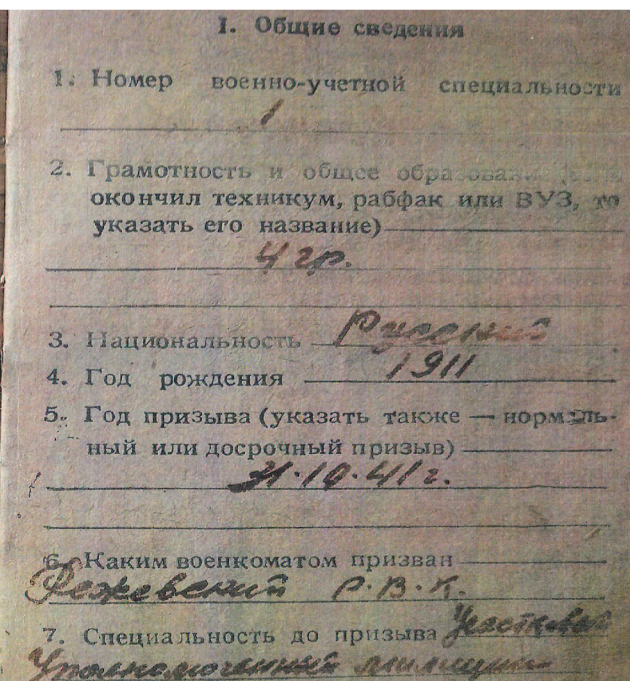 I. Общие сведения
1. Номер военно-учетной специальности
1
2. Грамотность и общее образование
окончил техникум, рабфак или ВУЗ, то
указать его название)
4 гр.
3. Национальность Русский
4. Год рождения 1911
5. Год призыва (указать также — нормаль-
ный или досрочный призыв)
31.10.41г.
6. Каким военкоматом призван
Режевский Р.В.К.
7. Специальность до призыва Участковой
Уполномоченный милиции